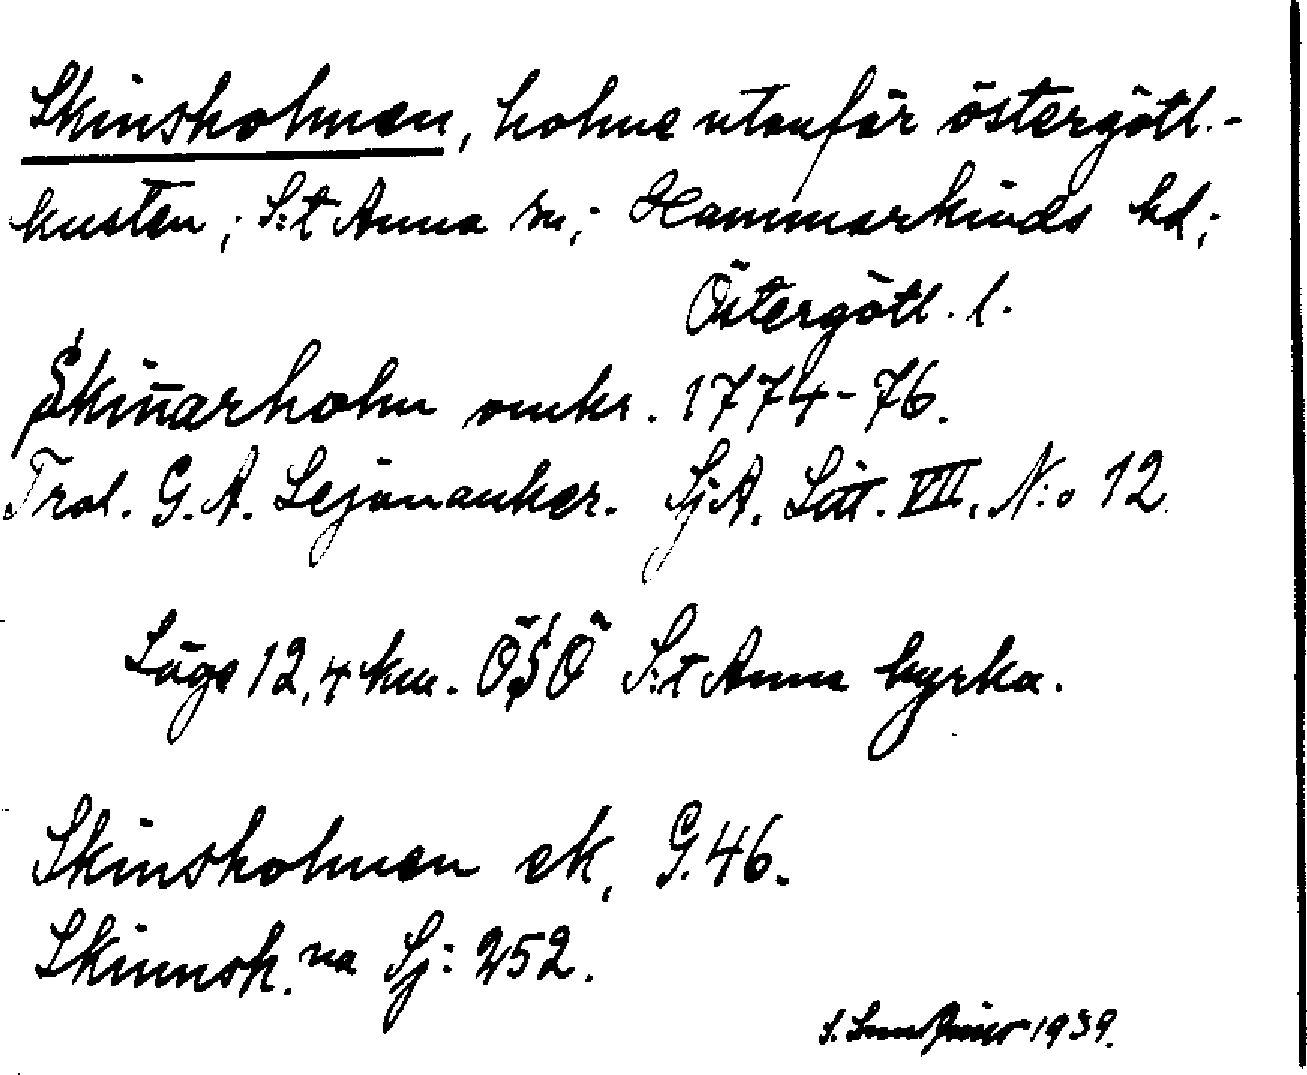 Skinsholmen, holme utanför östergötl.-
kusten; S:t Anna sn; Hammarkinds hd;
Östergötl. l.
Skiñarholm omkr. 1774-76.
Trol. G. A. Lejonanker. Sj.A. Litt. VII. N:o 12.
Läge 12,4 km. ÖSÖ S:t Anna kyrka.
Skinsholmen ek, G. 46.
Skinnsh. na Sj: 252.
1939.